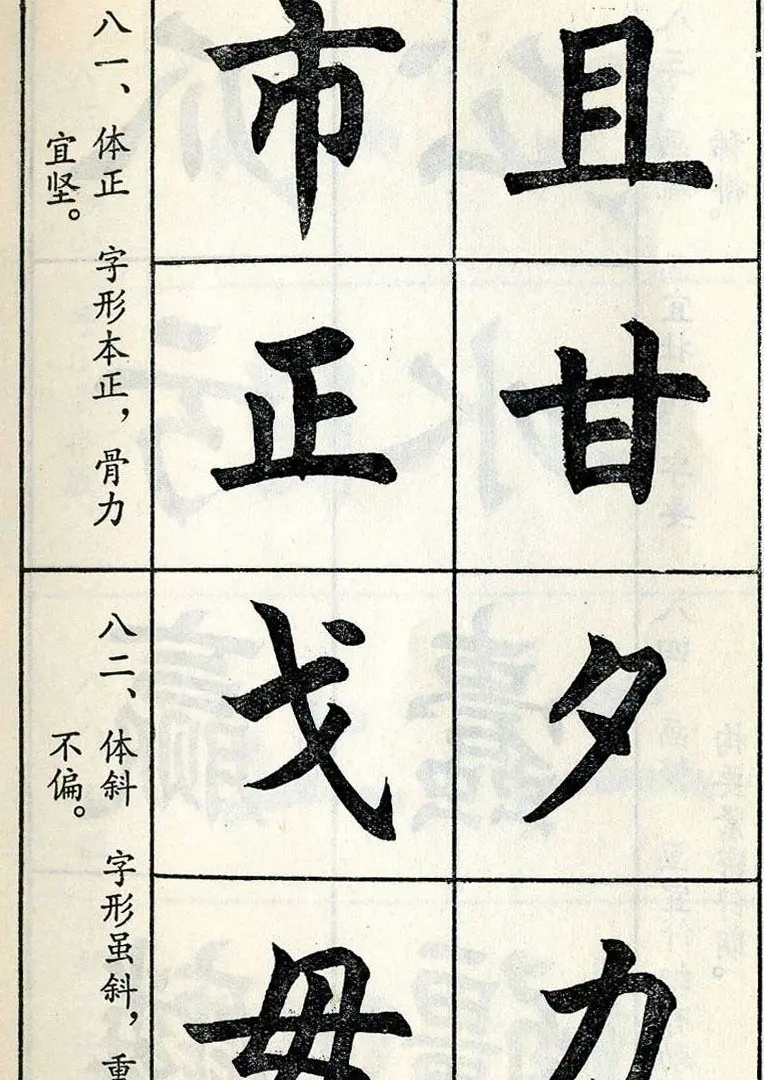 且
甘
夕
力
市
正
戈
八一、体正 字形本正，骨力
宜坚。
八二、体斜 字形虽斜，重
不偏。